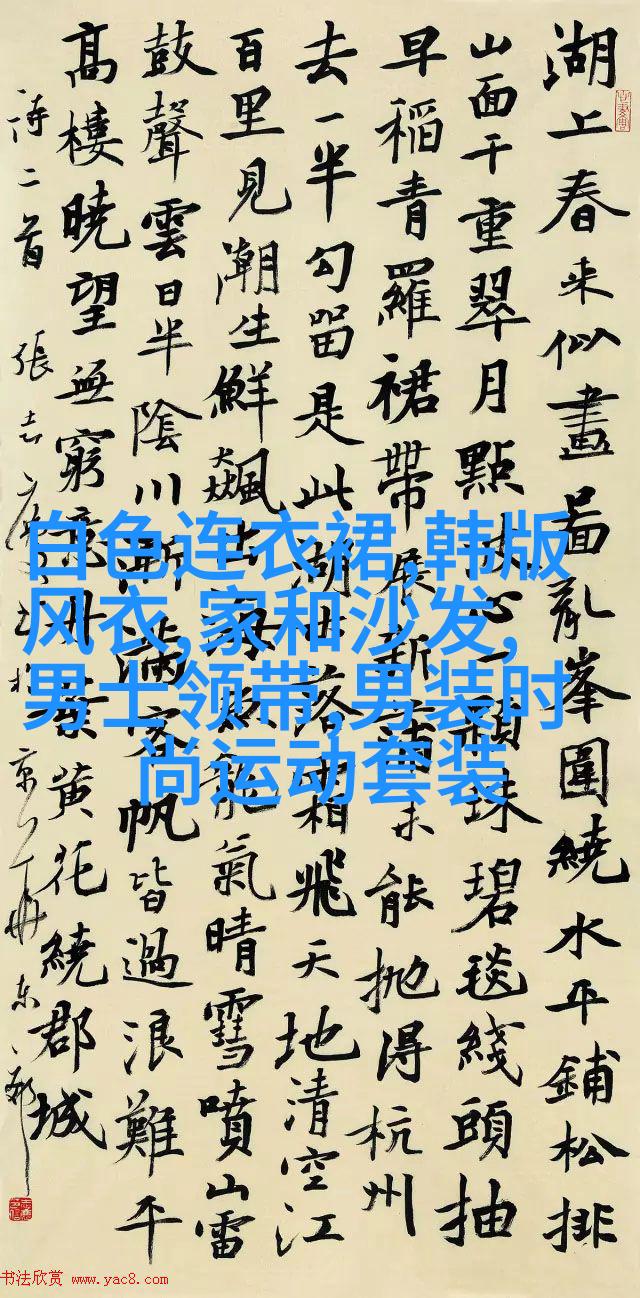 湖上春来似畫啚亂峯圍繞水平鋪松排
山面千重翠月點波心一顆珠碧毯綫頭抽
早稻青羅裙帶展新蒲未能抛得杭州
去一半勾留是此湖木落霜飛天地清空江
百里見潮生鮮飈出海魚龍氣晴雪噴山雷
鼓聲雲日半陰川漸滿客帆皆過浪難平
高樓曉望無窮意丹葉黄花繞郡城
詩二首 張志
白色连衣裙,韩版
风衣,家和沙发,
男士领带,男装时
尚运动套装
书法欣赏 www.yac8.com